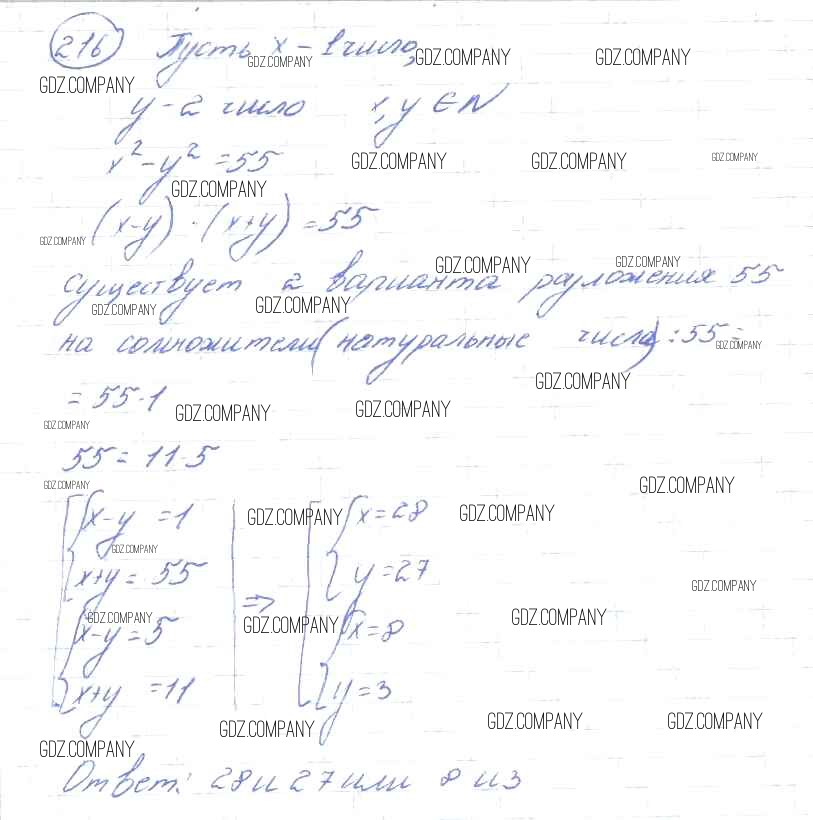 216 Пусть x - 1 число,
GDZ.COMPANY GDZ.COMPANY GDZ.COMPANY
GDZ.COMPANY
y - 2 число x, y ∈ N
x² - y² = 55 GDZ.COMPANY GDZ.COMPANY GDZ.COMPANY
GDZ.COMPANY
(x-y) · (x+y) = 55
GDZ.COMPANY
GDZ.COMPANY GDZ.COMPANY
существует 2 варианта разложения 55
GDZ.COMPANY GDZ.COMPANY
на сомножители (натуральные числа): 55 =
GDZ.COMPANY
GDZ.COMPANY
= 55·1 GDZ.COMPANY GDZ.COMPANY
GDZ.COMPANY
55 = 11·5
GDZ.COMPANY GDZ.COMPANY
[{x-y = 1 GDZ.COMPANY [{x=28 GDZ.COMPANY
GDZ.COMPANY
x+y = 55 y=27
GDZ.COMPANY
⇒
GDZ.COMPANY GDZ.COMPANY GDZ.COMPANY
{x-y=5 {x=8
x+y = 11 y=3
GDZ.COMPANY GDZ.COMPANY GDZ.COMPANY
GDZ.COMPANY
Ответ: 28 и 27 или 8 и 3